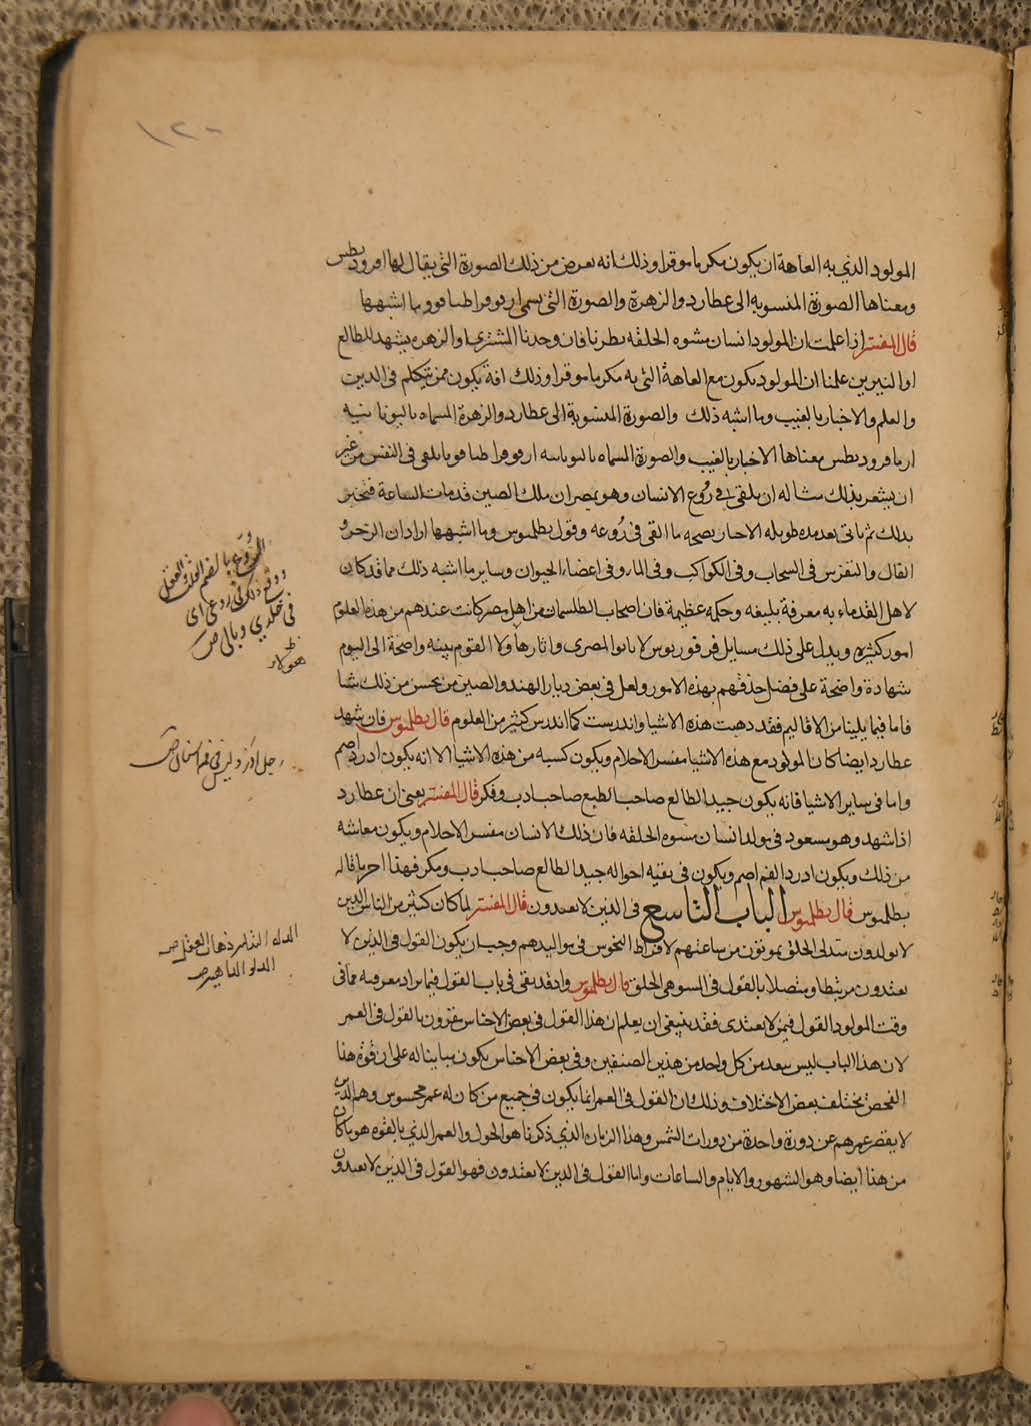 ١٢٠
المولود الذي به العاهة ان يكون مكرما موقرا وذلك انه يعرض من ذلك الصورة التي يقال لها افروديطس
ومعناها الصورة المنسوبة الى عطارد والزهرة والصورة التي يسمى اربوقراطيا قوو وما اشبهها
قال المفسر اذا علمت ان المولود انسان مشوه الخلقه نظرنا فان وجدنا المشتري او الزهره يشهد للطالع
او النيرين علمنا ان المولود يكون مع العاهة التي به مكرما موقرا وذلك انه يكون ممن يتكلم في الدين
والعلم والاخبار بالغيب وما اشبه ذلك والصورة المنسوبة الى عطارد والزهرة المسماه باليونانيه
ارمافروديطس معناها الاخبار بالغيب والصورة المسماه باليونانيه ما يلقى في النفس من غير
ان يشعر بذلك مثاله ان يلقى في رُوع الانسان وهو بمصر ان ملك الصين قد مات الساعة فتخبر
بذلك ثم ياتى بعد مده طويله الاخبار بصحه ما القى في رُوعه وقول بطلميوس وما اشبهها اراد ان الزجر و
الفال والتفرس في السحاب وفي الكواكب وفي الماء وفي اعضاء الحيوان وساير ما اشبه ذلك مما قد كان
لاهل القدماء به معرفة بليغه وحكمه عظيمة فان اصحاب الطلسمات من اهل مصر كانت عندهم من هذه العلوم
امور كثيره ويدل على ذلك مسايل فرفوريوس لانابو المصرى واثارهاولا القوم بينه واضحة الى اليوم
شهادة واضحة على فضل حذقهم بهذه الامور ولعل في بعض ديار الهند والصين من يحسن من ذلك شيا
فاما فيما يلينا من الاقاليم فقد ذهبت هذه الاشيا واندرست كما اندرس كثير من العلوم قال بطلميوس فان شهد
عطارد ايضا كان المولود مع هذه الاشيا مفسر الاحلام ويكون كسبه من هذه الاشيا الا انه يكون ادرد اصم
واما في ساير الاشيا فانه يكون جيد الطالع صاحب الطبع صاحب ادب وفكر قال المفسر يعني ان عطارد
اذا شهد وهو مسعود في مولد انسان مشوه الخلقه فان ذلك الانسان مفسر الاحلام ويكون معاشه
من ذلك ويكون ادرد الفم اصم ويكون في بقيه احواله جيد الطالع صاحب ادب ومكر فهذا اخر ما قاله
بطلميوس قال بطلميوس الباب التاسع في الذين لا يغتذون قال المفسر لما كان كثير من الناس الذين
لا يولدون مبتدلى الخلق يموتون من ساعتهم لافراط النحوس في مواليدهم وجب ان يكون القول في الذين لا
يغتذون مرتبطا ومتصلا بالقول في المشوهي الخلق قال بطلميوس واذ قد بقى في باب القول فيما يراد معرفته مما في
وقت المولود القول فيمن لا يغتذى فقد ينبغى ان يعلم ان هذا القول في بعض الاجناس مقرون بالقول في العمر
لان هذا الباب ليس ببعد من كل واحد من هذين الصنفين وفي بعض الاجناس يكون مباينا له على ان قوة هذا
الفحص تختلف بعض الاختلاف وذلك ان القول في العمر انما يكون في جميع من كان له عمر محسوس وهم الذين
لا يقصر عمرهم عن دورة واحدة من دورات الشمس وهذا الزمان الذي ذكرنا هو الحول والعمر الذي بالقوه هو ما كان
من هذا ايضا وهو الشهور والايام والساعات واما القول في الذين لا يغتذون فهو القول في الذين لا يعدون
الرُّوع بالضم القلب والعقل
ووقع ذلك في روعي اى
في خلدي وبالى ص